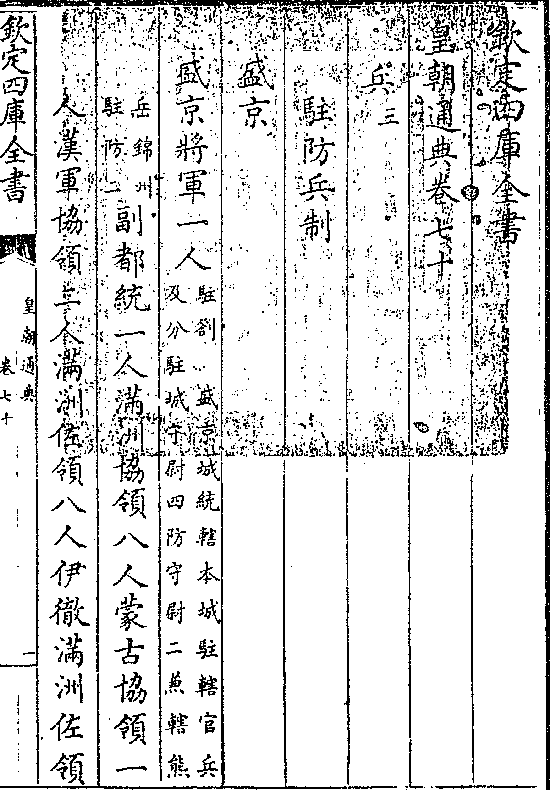 欽定四庫全書
皇朝通典卷七十
兵三
駐防兵制
盛京
盛京將軍一人
駐劄 盛京城統轄本城駐轄官兵
及分駐城守尉四防守尉二兼轄熊
岳錦州
駐防二
副都統一人滿洲協領八人蒙古協領一
人漢軍協領人滿洲佐領八人伊徹滿洲佐領
欽定四庫全書
皇朝通典
卷七十
一